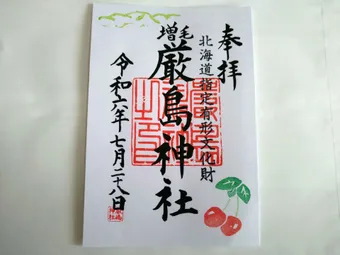 奉拝
北海道指定有形文化財
増毛
厳島神社
令和六年七月二十八日